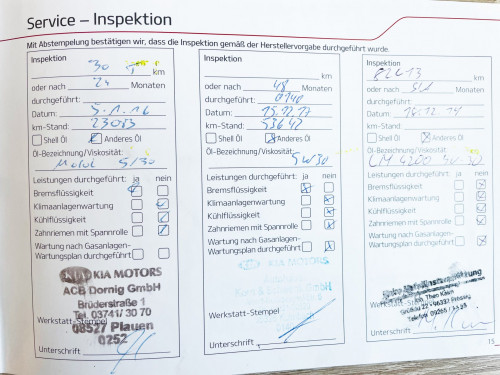 Service – Inspektion
Mit Abstempelung bestätigen wir, dass die Inspektion gemäß der Herstellervorgabe durchgeführt wurde.
Inspektion
30 T km
oder nach 24 Monaten
durchgeführt:
Datum: 5.1.16
km-Stand: 23083
Shell Öl Anderes Öl
Öl-Bezeichnung/Viskosität:
Motul 5/30
Leistungen durchgeführt: ja nein
Bremsflüssigkeit
Klimaanlagenwartung
Kühlflüssigkeit
Zahnriemen mit Spannrolle
Wartung nach Gasanlagen-
Wartungsplan durchgeführt
KIA MOTORS
ACB Dornig GmbH
Brüderstraße 1
Tel. 03741/30 70
Werkstatt-Stempel
08527 Plauen
0252
Unterschrift
Inspektion
km
oder nach 48 Monaten
durchgeführt:
Datum: 15.12.17
km-Stand: 53642
Shell Öl Anderes Öl
Öl-Bezeichnung/Viskosität:
5W30
Leistungen durchgeführt: ja nein
Bremsflüssigkeit
Klimaanlagenwartung
Kühlflüssigkeit
Zahnriemen mit Spannrolle
Wartung nach Gasanlagen-
Wartungsplan durchgeführt
KIA MOTORS
Werkstatt-Stempel
Unterschrift
Inspektion
82413 km
oder nach Monaten
durchgeführt:
Datum:
km-Stand:
Shell Öl Anderes Öl
Öl-Bezeichnung/Viskosität:
LM 4200 5W30
Leistungen durchgeführt: ja nein
Bremsflüssigkeit
Klimaanlagenwartung
Kühlflüssigkeit
Zahnriemen mit Spannrolle
Wartung nach Gasanlagen-
Wartungsplan durchgeführt
Werkstatt-Stempel
Unterschrift
15